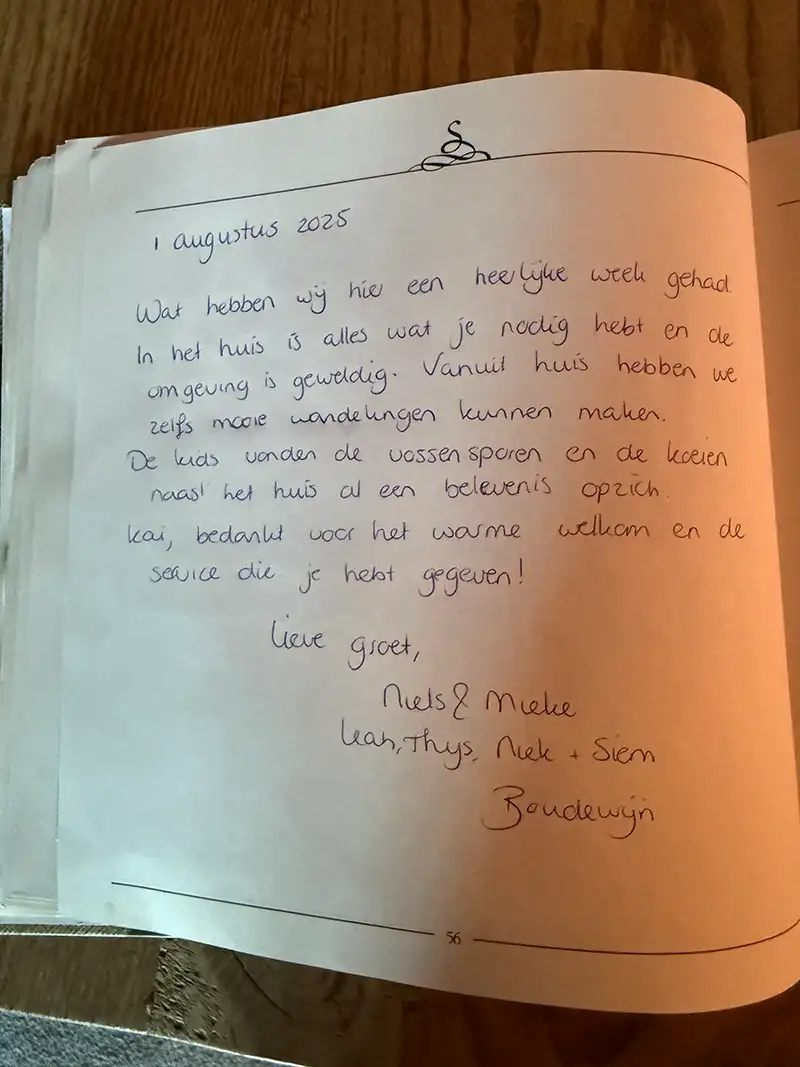 1 augustus 2025
Wat hebben wij hier een heerlijke week gehad.
In het huis is alles wat je nodig hebt en de
omgeving is geweldig. Vanuit huis hebben we
zelfs mooie wandelingen kunnen maken.
De kids vonden de vossensporen en de koeien
naast het huis al een belevenis opzich.
Kai, bedankt voor het warme welkom en de
service die je hebt gegeven!
Lieve groet,
Niels & Mieke
Leah, Thys, Niek + Siem
Boudewijn
56